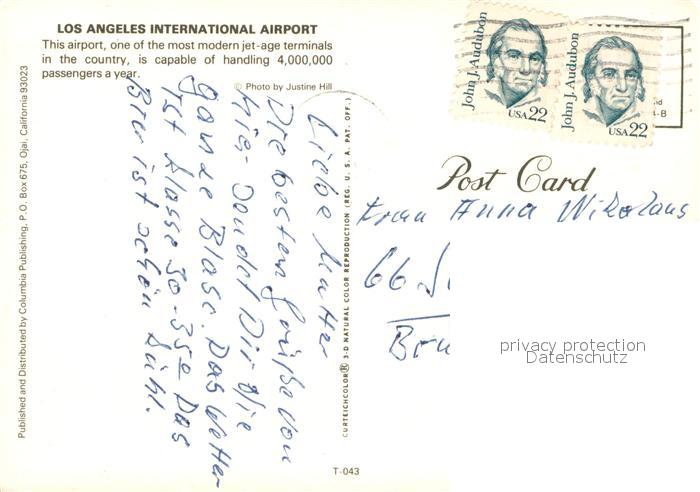 LOS ANGELES INTERNATIONAL AIRPORT
This airport, one of the most modern jet-age terminals
in the country, is capable of handling 4,000,000
passengers a year.
© Photo by Justine Hill
Published and Distributed by Columbia Publishing, P.O. Box 675, Ojai, California 93023
Liebe Mutter
Die besten Grüße von
hir. Sendet Dir die
ganze Blase. Das Wetter
Ist Klasse 30-35° Das
Bier ist schön kühl.
CURTEICHCOLOR® 3-D NATURAL COLOR REPRODUCTION (REG. U.S.A. PAT. OFF.)
T-043
John J. Audubon
USA 22
John J. Audubon
USA 22
Post Card
Frau Anna Nikolaus
66
privacy protection
Datenschutz